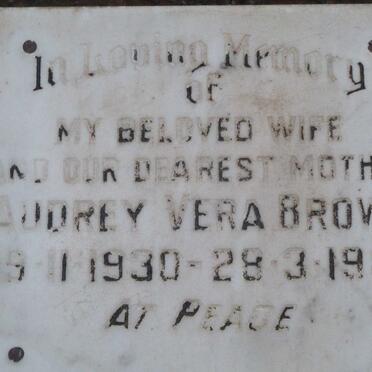 In Loving Memory
OF
MY BELOVED WIFE
AND OUR DEAREST MOTH
AUDREY VERA BROW
1930 - 28 · 3 · 19
AT PEACE